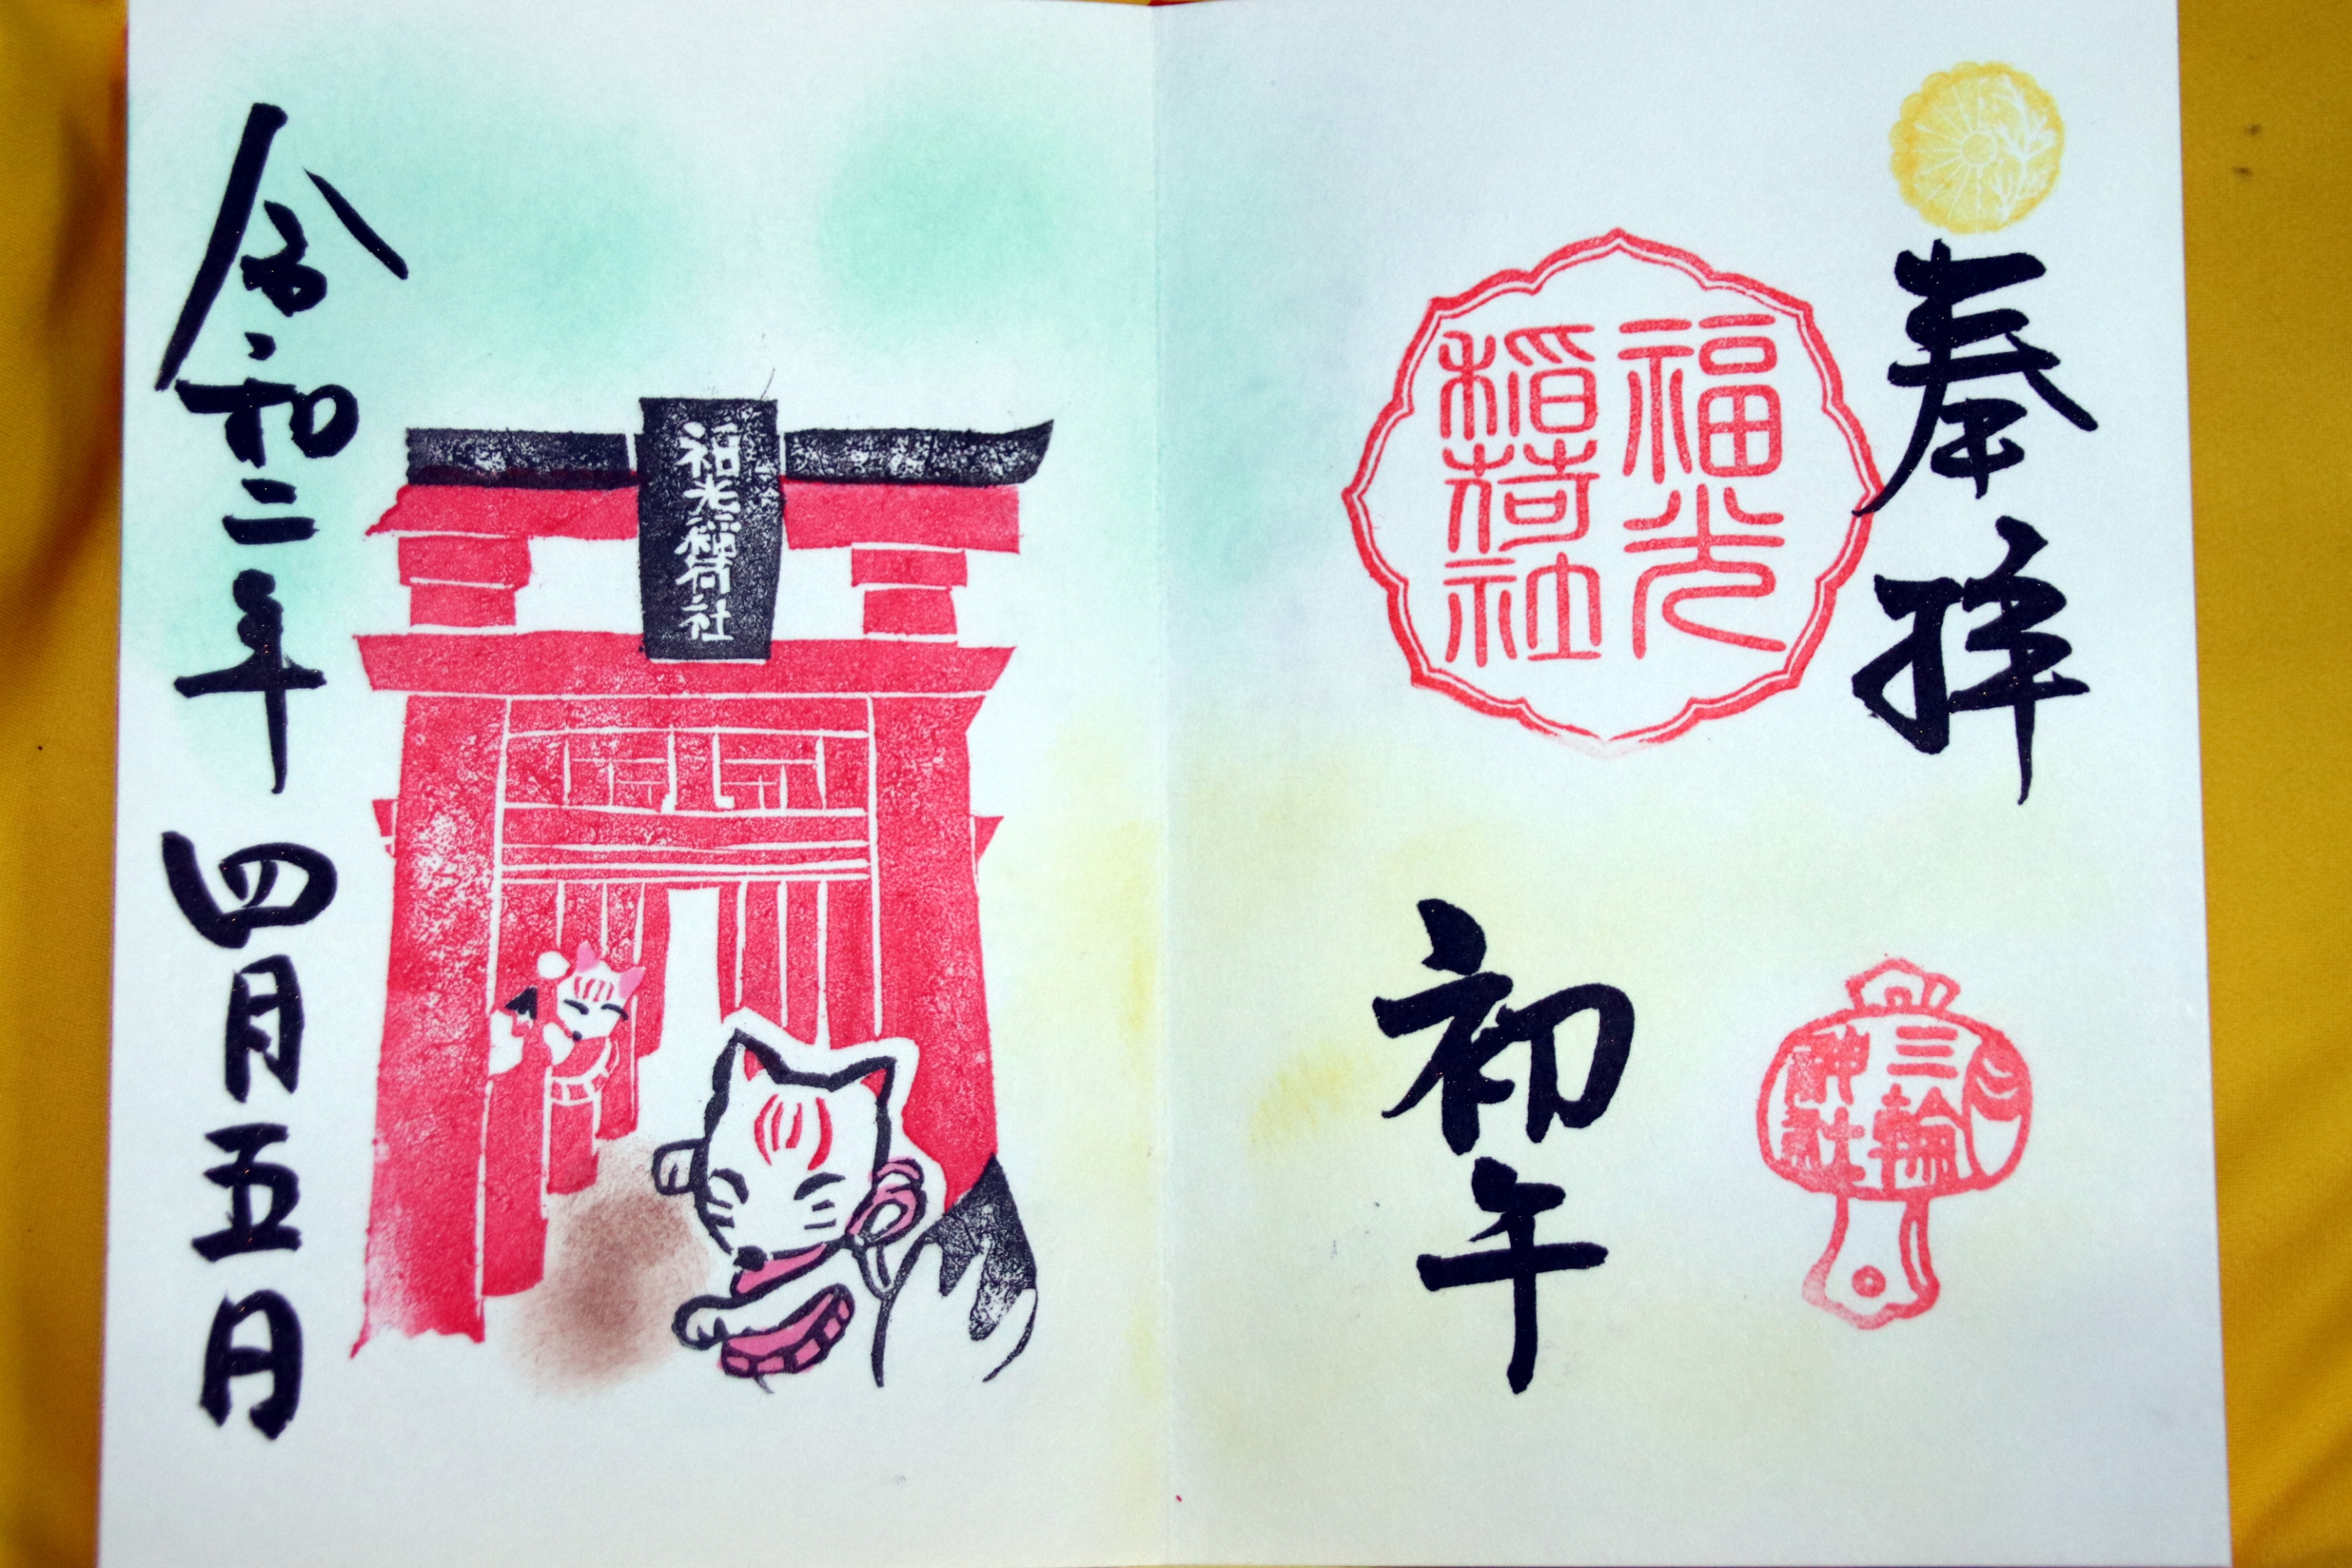 奉拝
福光
稲荷社
三輪
神社
初午
福光稲荷社
令和二年四月五月